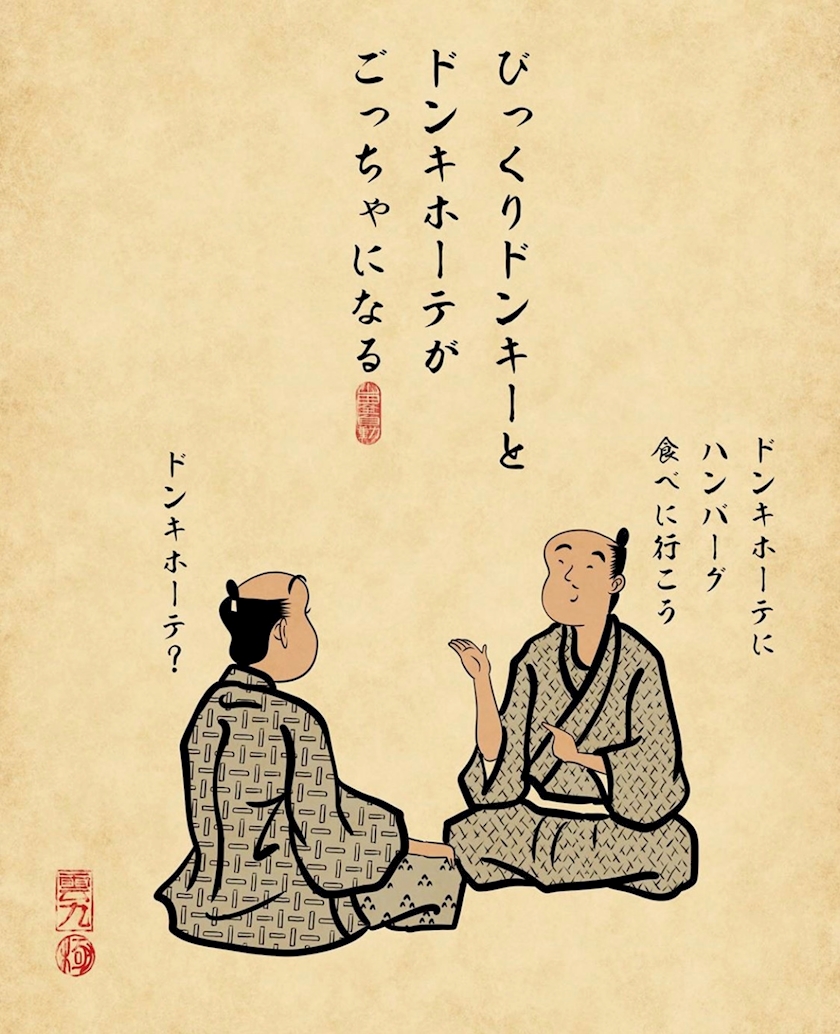 びっくりドンキーと
ドンキホーテが
ごっちゃになる
ドンキホーテに
ハンバーグ
食べに行こう
ドンキホーテ？